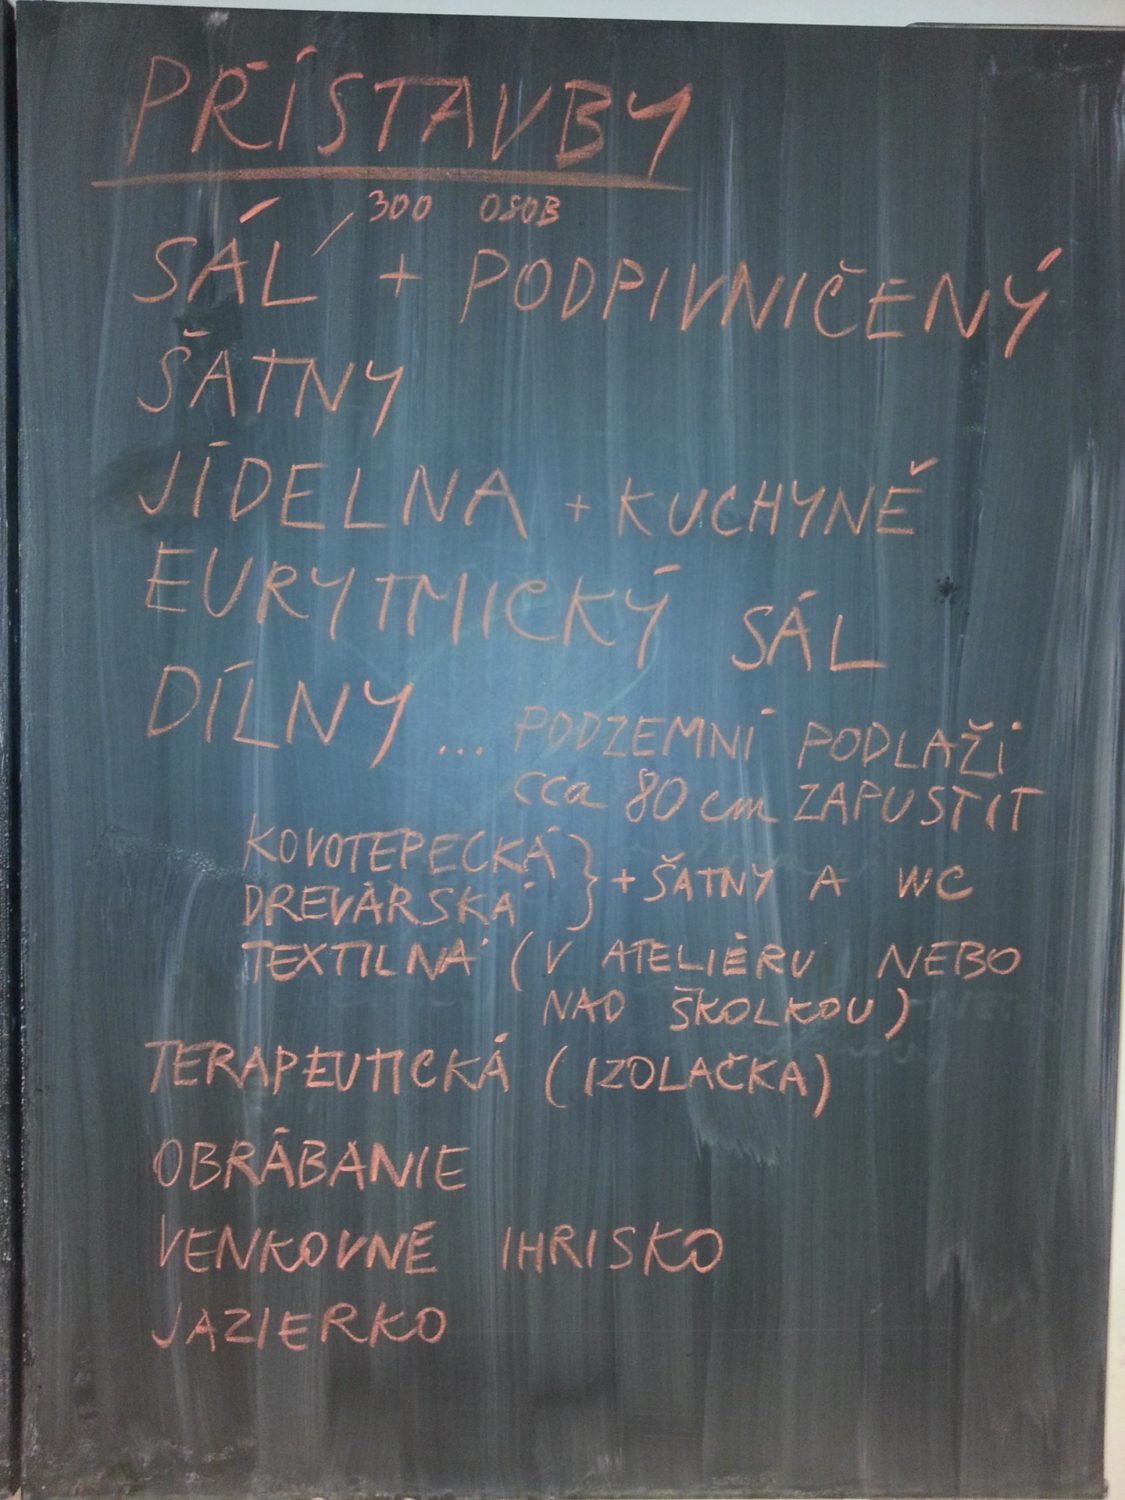 PŘÍSTAVBY
300 OSOB
SÁL + PODPIVNIČENÝ
ŠATNY
JÍDELNA + KUCHYNĚ
EURYTMICKÝ SÁL
DÍLNY ... PODZEMNÍ PODLAŽÍ
cca 80 cm ZAPUSTIT
KOVOTEPECKÁ
DREVÁRSKÁ } + ŠATNY A WC
TEXTILNÁ (V ATELIÉRU NEBO
NAD ŠKOLKOU)
TERAPEUTICKÁ (IZOLAČKA)
OBRÁBANIE
VENKOVNÉ IHRISKO
JAZIERKO